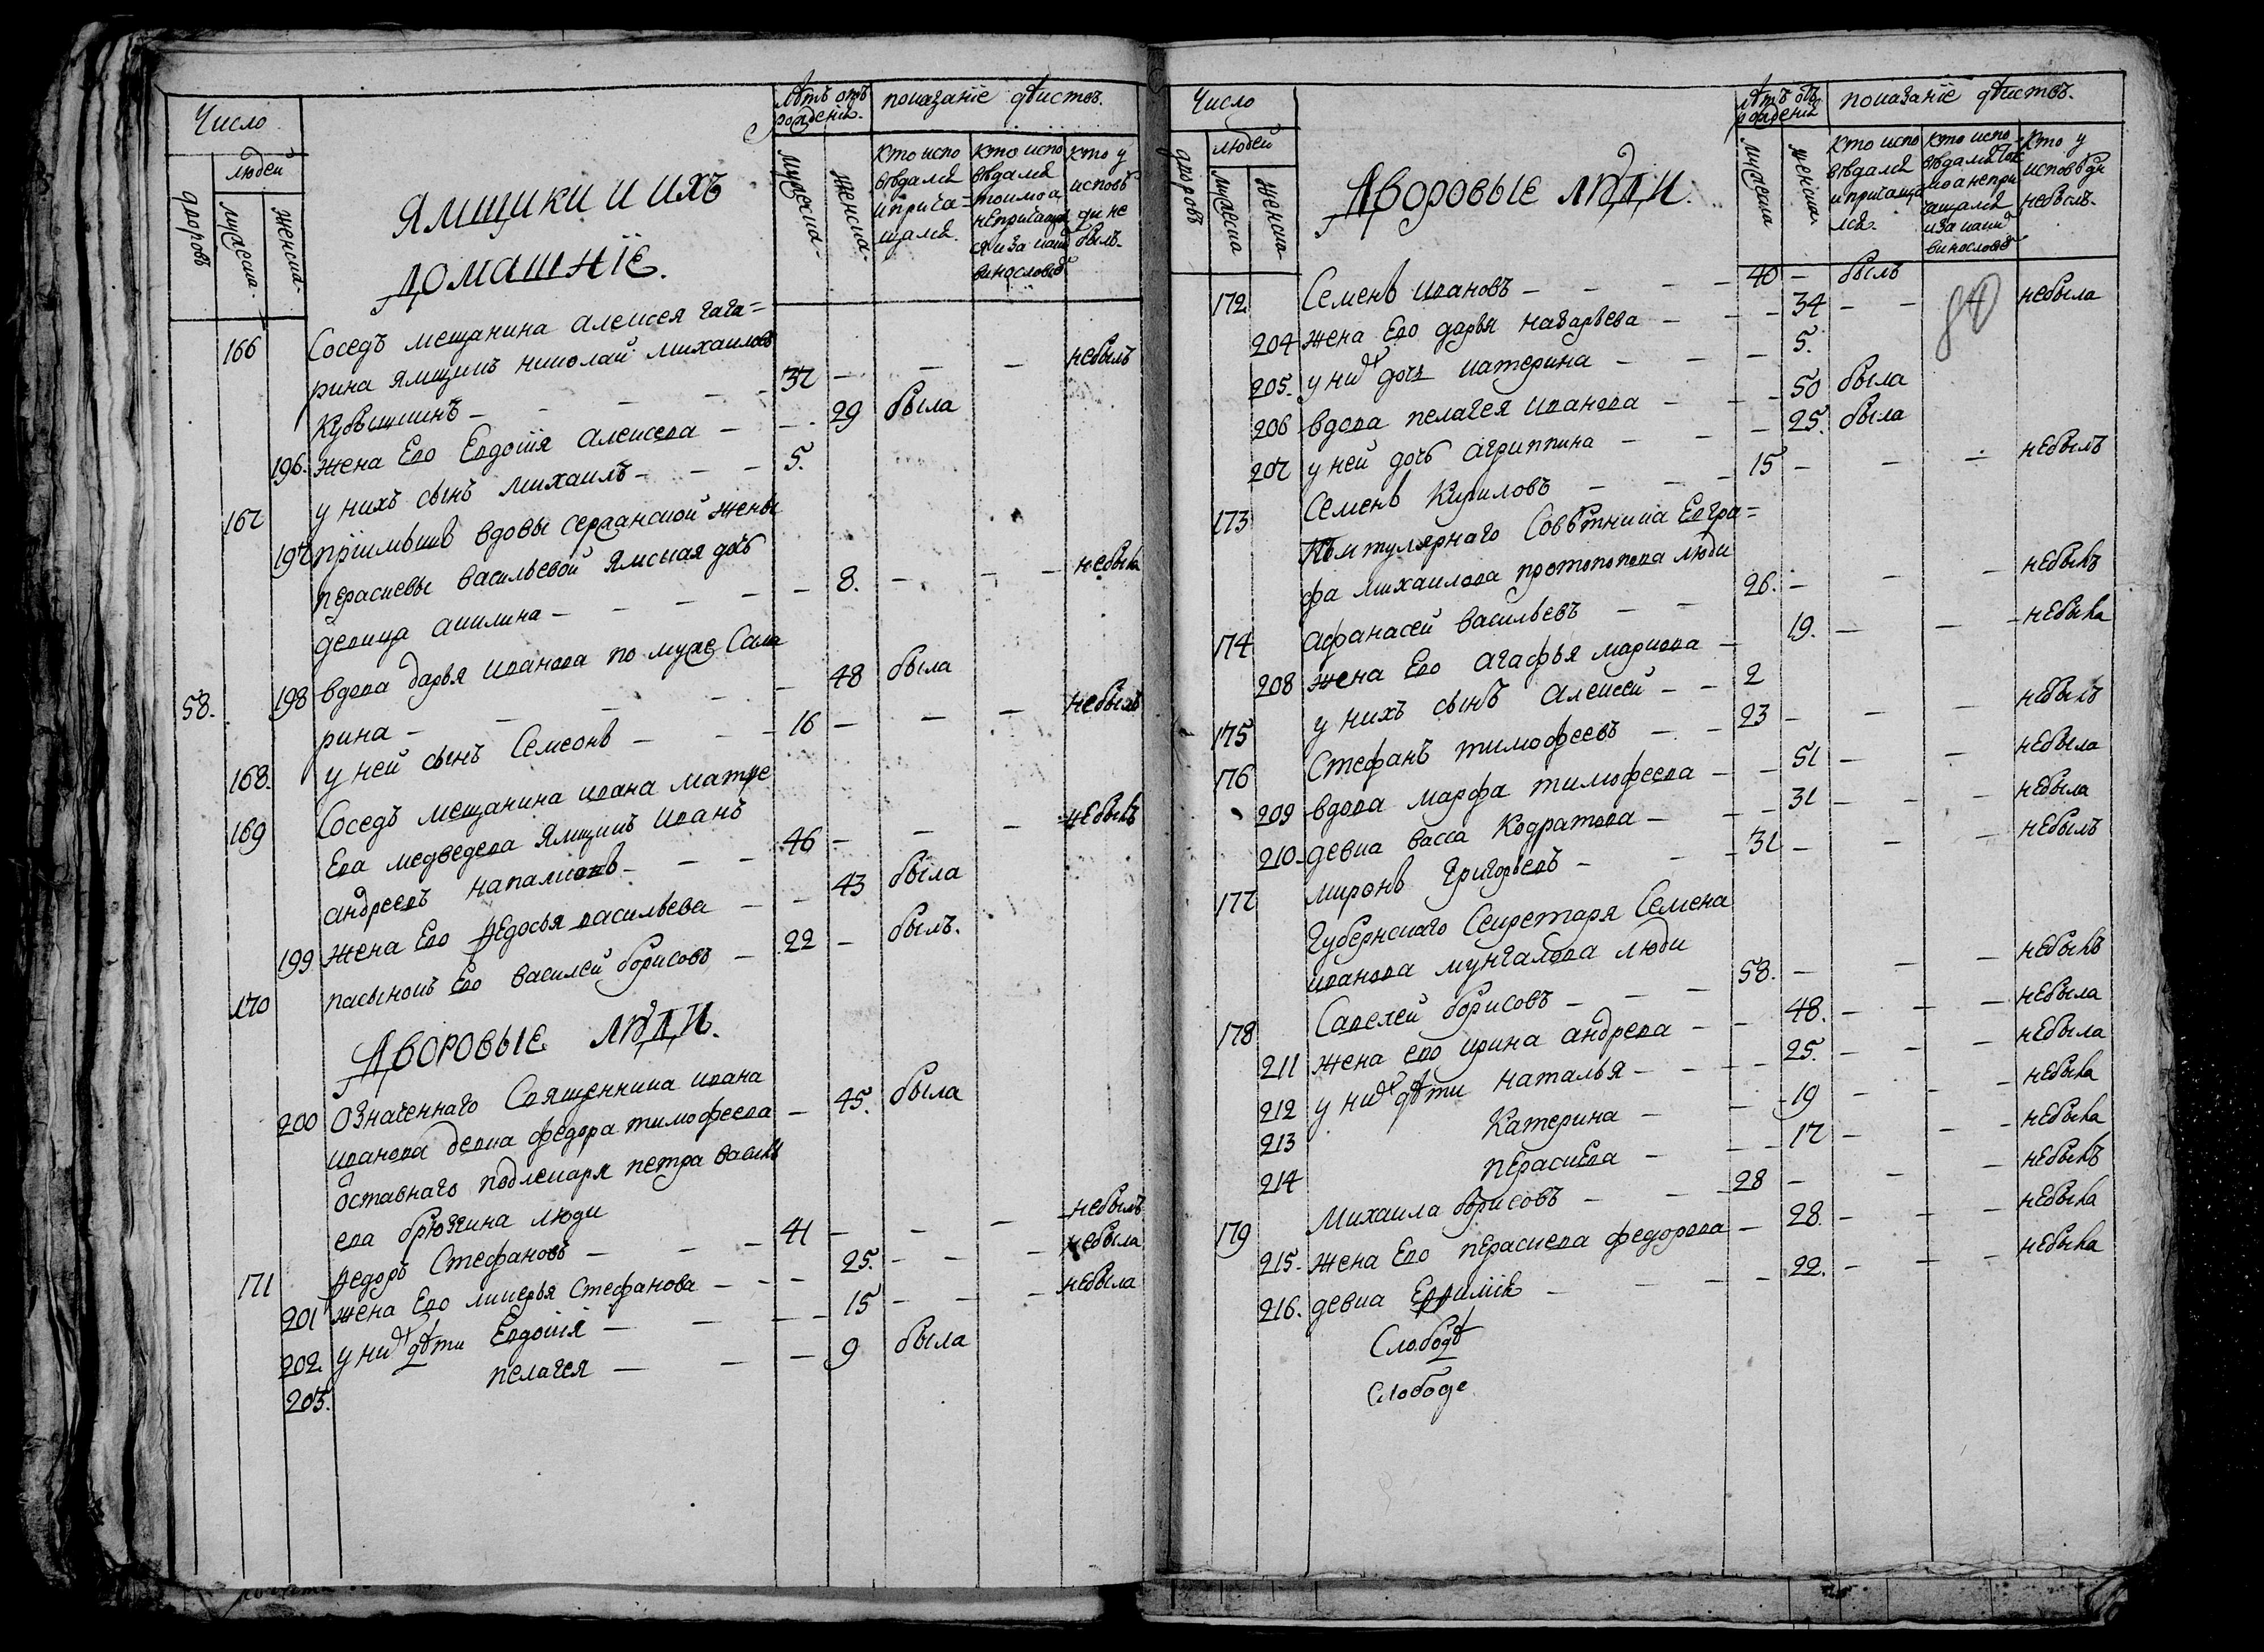 Число
людей
дворовъ
мужеска.
женска.
Ямщики и ихъ
домашнїе.
лѣтъ отъ
рожденїя.
мужеска.
женска.
показанїе дѣйствъ.
Кто испо
вѣдался
и прича=
щался.
Кто испо
вѣдался
токмо а
непричащал
ся и за каки
винословїе
Кто у
исповѣ
ди не
былъ.
166 Соседъ мещанина Алексея Гага=
рина ямщикъ николай михаиловъ
Кубышкинъ 37 небылъ
196. жена Его Евдокїя Алексеева 29 была
167 у нихъ сынъ михаилъ 5.
197 прїимышъ вдовы сержанской жены
перасковьи васильевой Ямская дочь
девица акилина 8. небыла
58. 198 вдова дарья иванова по муже Сама
рина 48 была
168. у ней сынъ Симеонъ 16 небылъ
169 Соседъ мещанина ивана матфе
Ева медведева Ямщикъ Иванъ
андреевъ 46 небылъ
199 жена Его федосья васильева 43 была
170 пасынокъ Его василей борисовъ 22 былъ.
Дворовые люди.
200 Означеннаго Священника ивана
иванова девка федора тимофеева 45. была
Оставнаго подлекаря петра василь
ева брюзгина люди
171 федоръ Стефановъ 41 небылъ
201 жена Его Стефанова 25. небыла
202. у них дѣти Евдокїя 15 небыла
203. пелагея 9 была
Число
людей
дворовъ
мужеска
женска
Дворовые люди.
лѣтъ отъ
рожденїя
мужеска
женска.
показанїе дѣйствъ.
Кто испо
вѣдался
и причаща
лся.
Кто испо
вѣдался ток
мо а непри
чащался
и за каки
винословїе
Кто у
исповѣди
небылъ.
172 Семенъ ивановъ 40 былъ
204 жена Его дарья назарьева 34 небыла
205. у них дочь катерина 5.
206 вдова пелагея иванова 50 была
207 у ней дочь агриппина 25. была
173 Семенъ Кириловъ 15 небылъ
Титулярнаго Совѣтника Евгра=
фа михаилова протопопова люди
174 афанасей васильевъ 26. небылъ
208 жена Его агафья маркова 19. небыла
175 у нихъ сынъ алексей 2
176 Стефанъ тимофеевъ 23 небылъ
209 вдова марфа тимофеева 51 небыла
210 девка васса Кодратова 31 небыла
177 миронъ григорьевъ 31 небылъ
Губернскаго Секретаря Семена
иванова мунгалова люди
178 Савелей борисовъ 58. небылъ
211 жена его ирина андрева 48. небыла
212 у них дѣти наталья 25. небыла
213 Катерина 19 небыла
214 перасковьа 17 небыла
179 Михаила борисовъ 28 небылъ
215. жена Его перасковьа федорова 28. небыла
216. девка 22. небыла
Слободѣ
Слободе